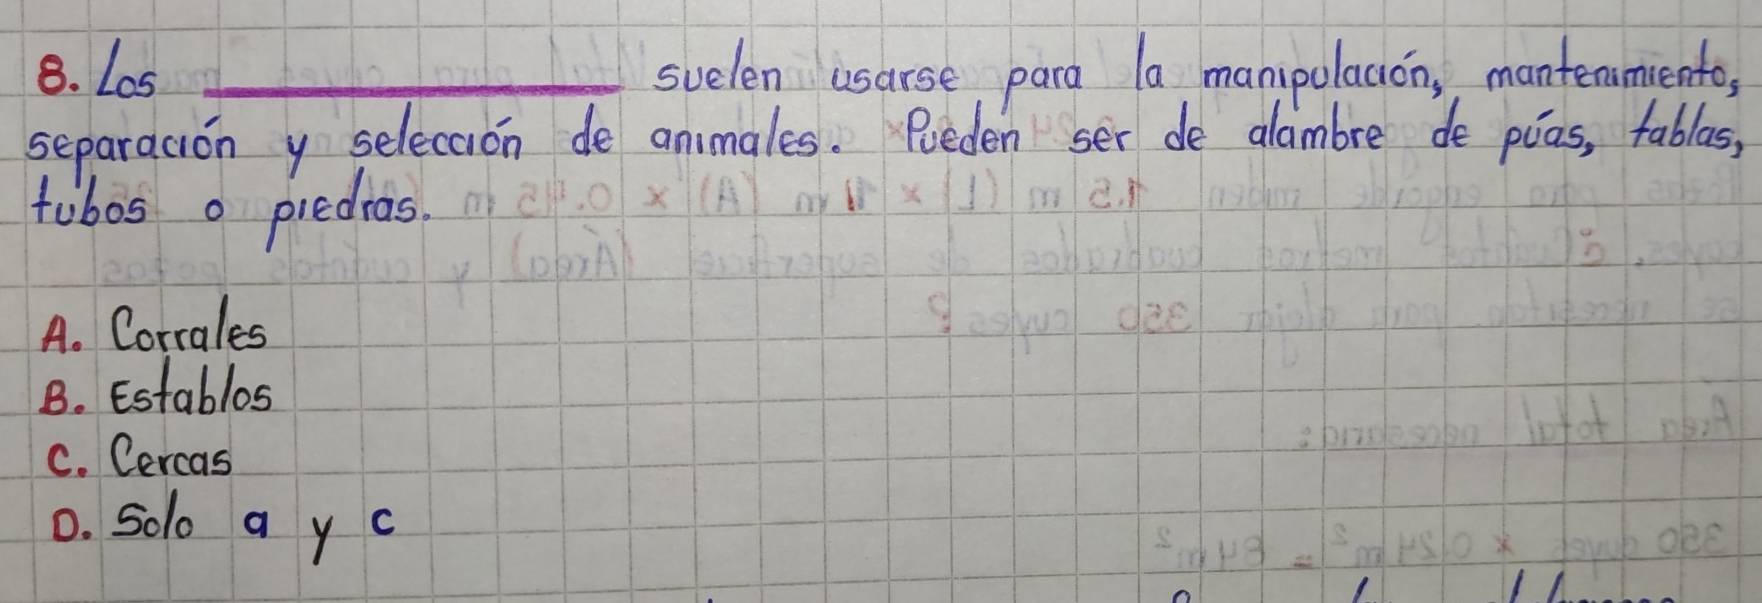 8. Los ____________ suelen usarse para la manipulación, mantenimiento,
separación y selección de animales. Pueden ser de alambre de púas, tablas,
tubos o piedras.
A. Corrales
B. Establos
C. Cercas
D. Solo a y c